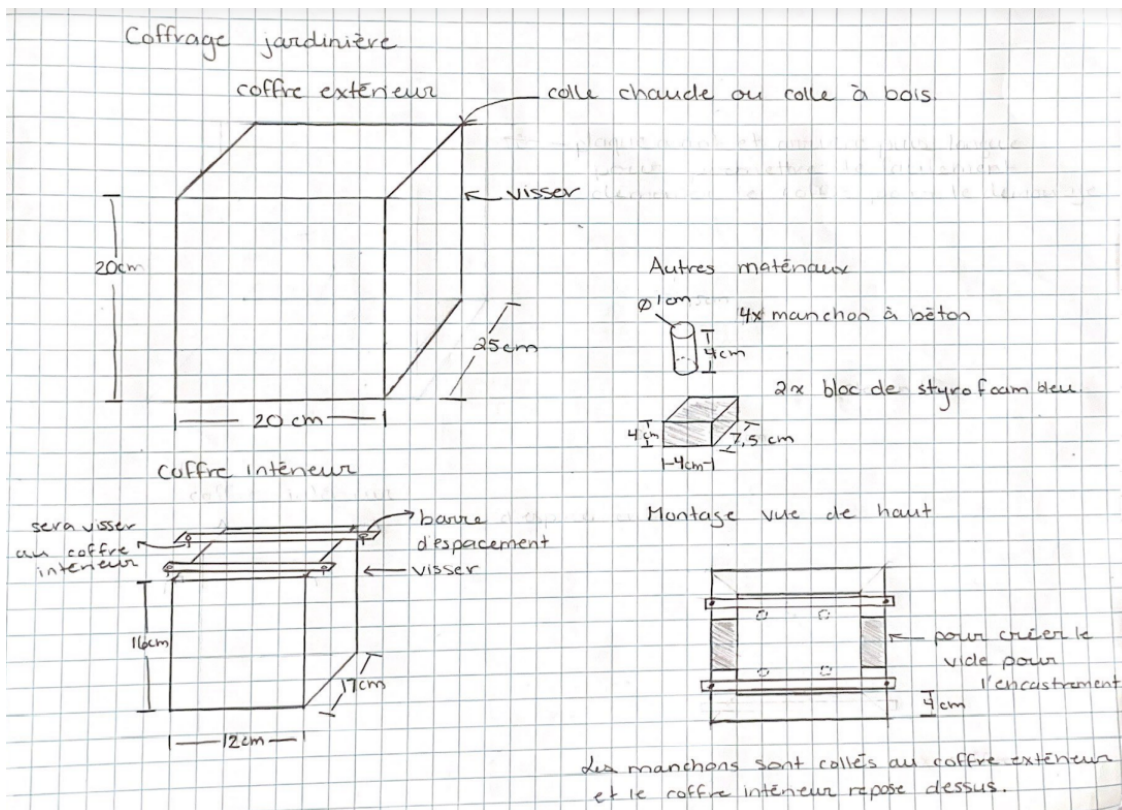 Coffrage jardinière
coffre extérieur
colle chaude ou colle à bois.
visser
20cm
25cm
20 cm
Autres matériaux
Ø1cm
4x manchon à béton
4cm
2x bloc de styrofoam bleu.
4cm
7,5 cm
4cm
coffre intérieur
sera visser
au coffre
intérieur
barre
d'espacement
visser
16cm
17cm
12cm
Montage vue de haut
pour créer le
vide pour
l'encastrement
4cm
Les manchons sont collés au coffre extérieur
et le coffre intérieur repose dessus.